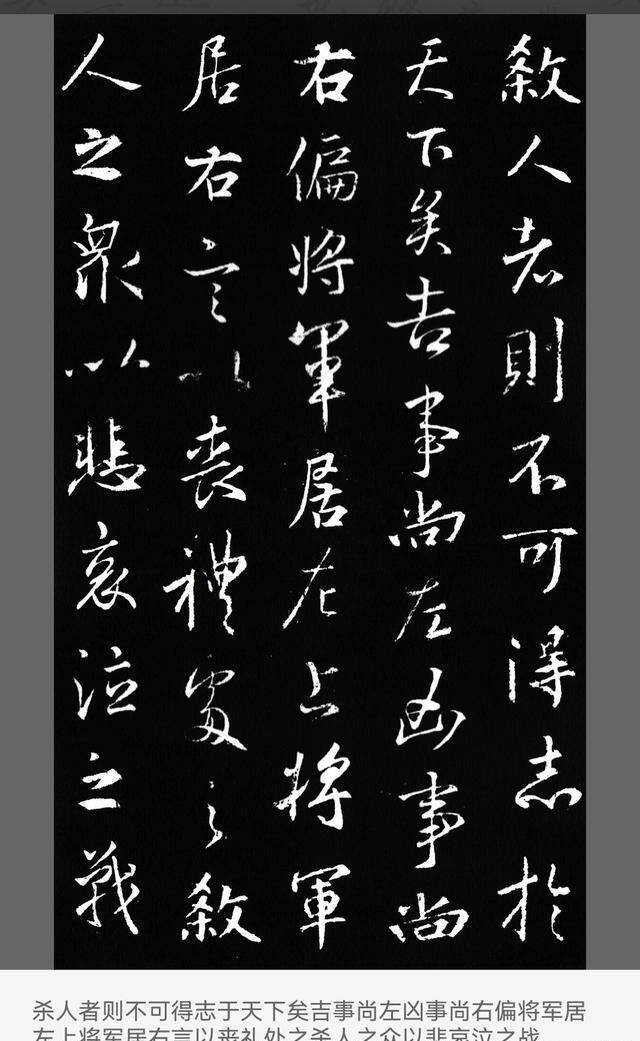 殺人者則不可得志於
天下矣吉事尚左凶事尚
右偏將軍居左上將軍
居右言以喪禮處之殺
人之眾以悲哀泣之戰
杀人者则不可得志于天下矣吉事尚左凶事尚右偏将军居
左上将军居右言以丧礼处之杀人之众以悲哀泣之战